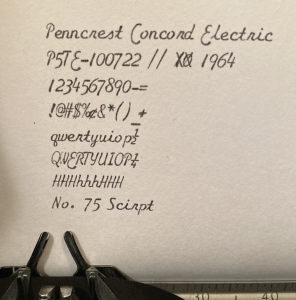 Penncrest Concord Electric
P5TE-100722 // XX 1964
1234567890-=
!@#$%¢&*()_+
qwertyuiop½
QWERTYUIOP¼
HHHhhhHHH
No. 75 Scirpt
30 40